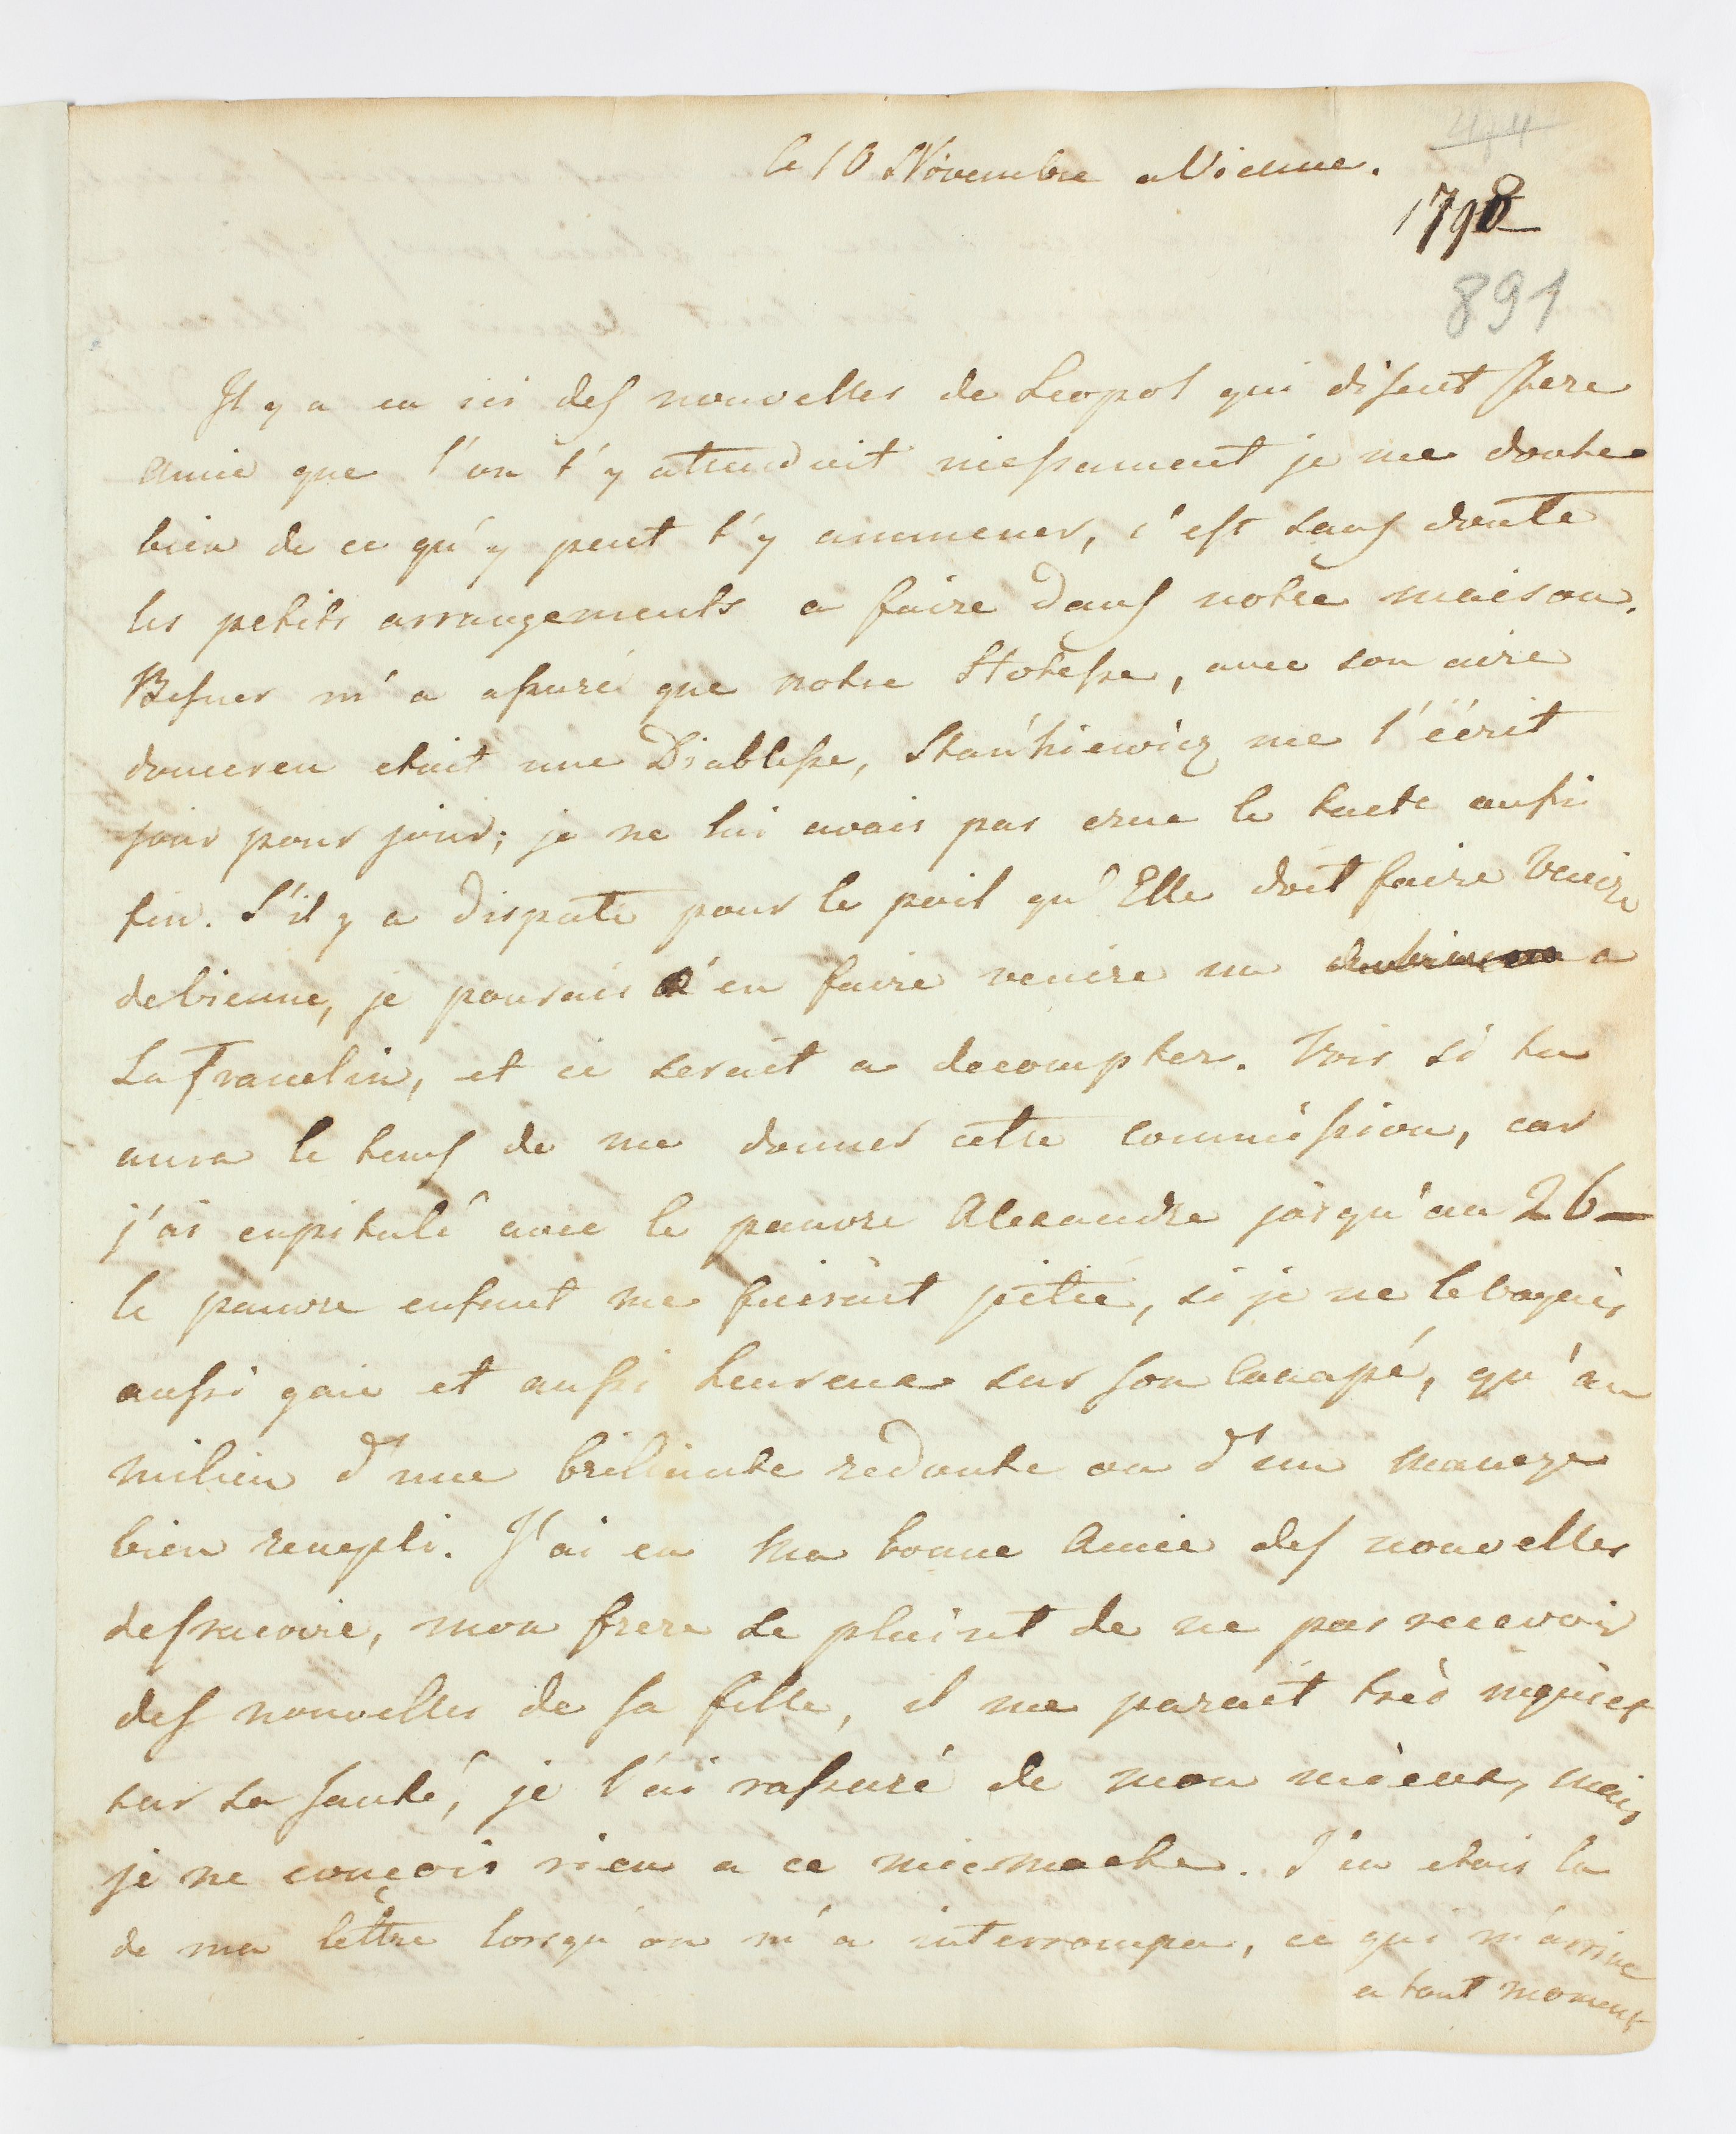 474
le 10 Novembre a Vienne.
1798
891
Il y a eu ici des nouvelles de Leopol qui disent chere
Amie que l'on t'y attendoit incessament je me doute
bien de ce qu'y peut t'y ammener, c'est sans doute
les petits arrangements a faire dans notre maison.
Besner m'a assuré que notre Hotesse, avec son aire
doucereu etait une Diablesse, Stańkiewicz me l'écrit
jour pour jour; je ne lui avais pas crue le tacte aussi
fin. S'il y a dispute pour le poil qu'Elle doit faire Venire
de Vienne, je pourais en faire venire un a
La Franclin, et ce serait a decompter. Vois si tu
aura le tems de me donner cette commission, car
j'ai capitulé avec le pauvre Alexandre jusqu'au 26 —
le pauvre enfant me fairait pitié, si je ne le Voyais
aussi gaie et aussi heureux sur son Canapé, qu'au
milieu d'une briliante redoute ou d'un manege
bien rempli. J'ai eu Ma bonne Amie des nouvelles
de mon frere se plaint de ne pas recevoir
des nouvelles de sa fille, il me parait très inquiet
sur sa santé, je l'ai rassuré de mon mieux, mais
je ne conçois rien a ce micmacke. J'en etois la
de ma lettre lorsqu'on m'a interrompu, ce qui m'arrive
a tout moment